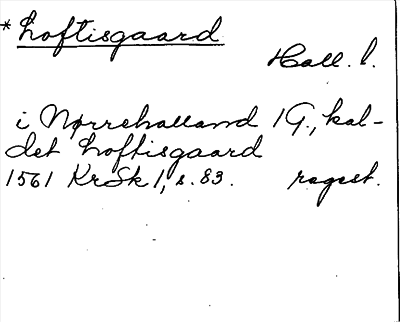 *Loftisgaard
Hall. l.
i Nørrehalland 1 G., kal-
det Loftisgaard
1561 KrSk 1, s. 83. ragest.